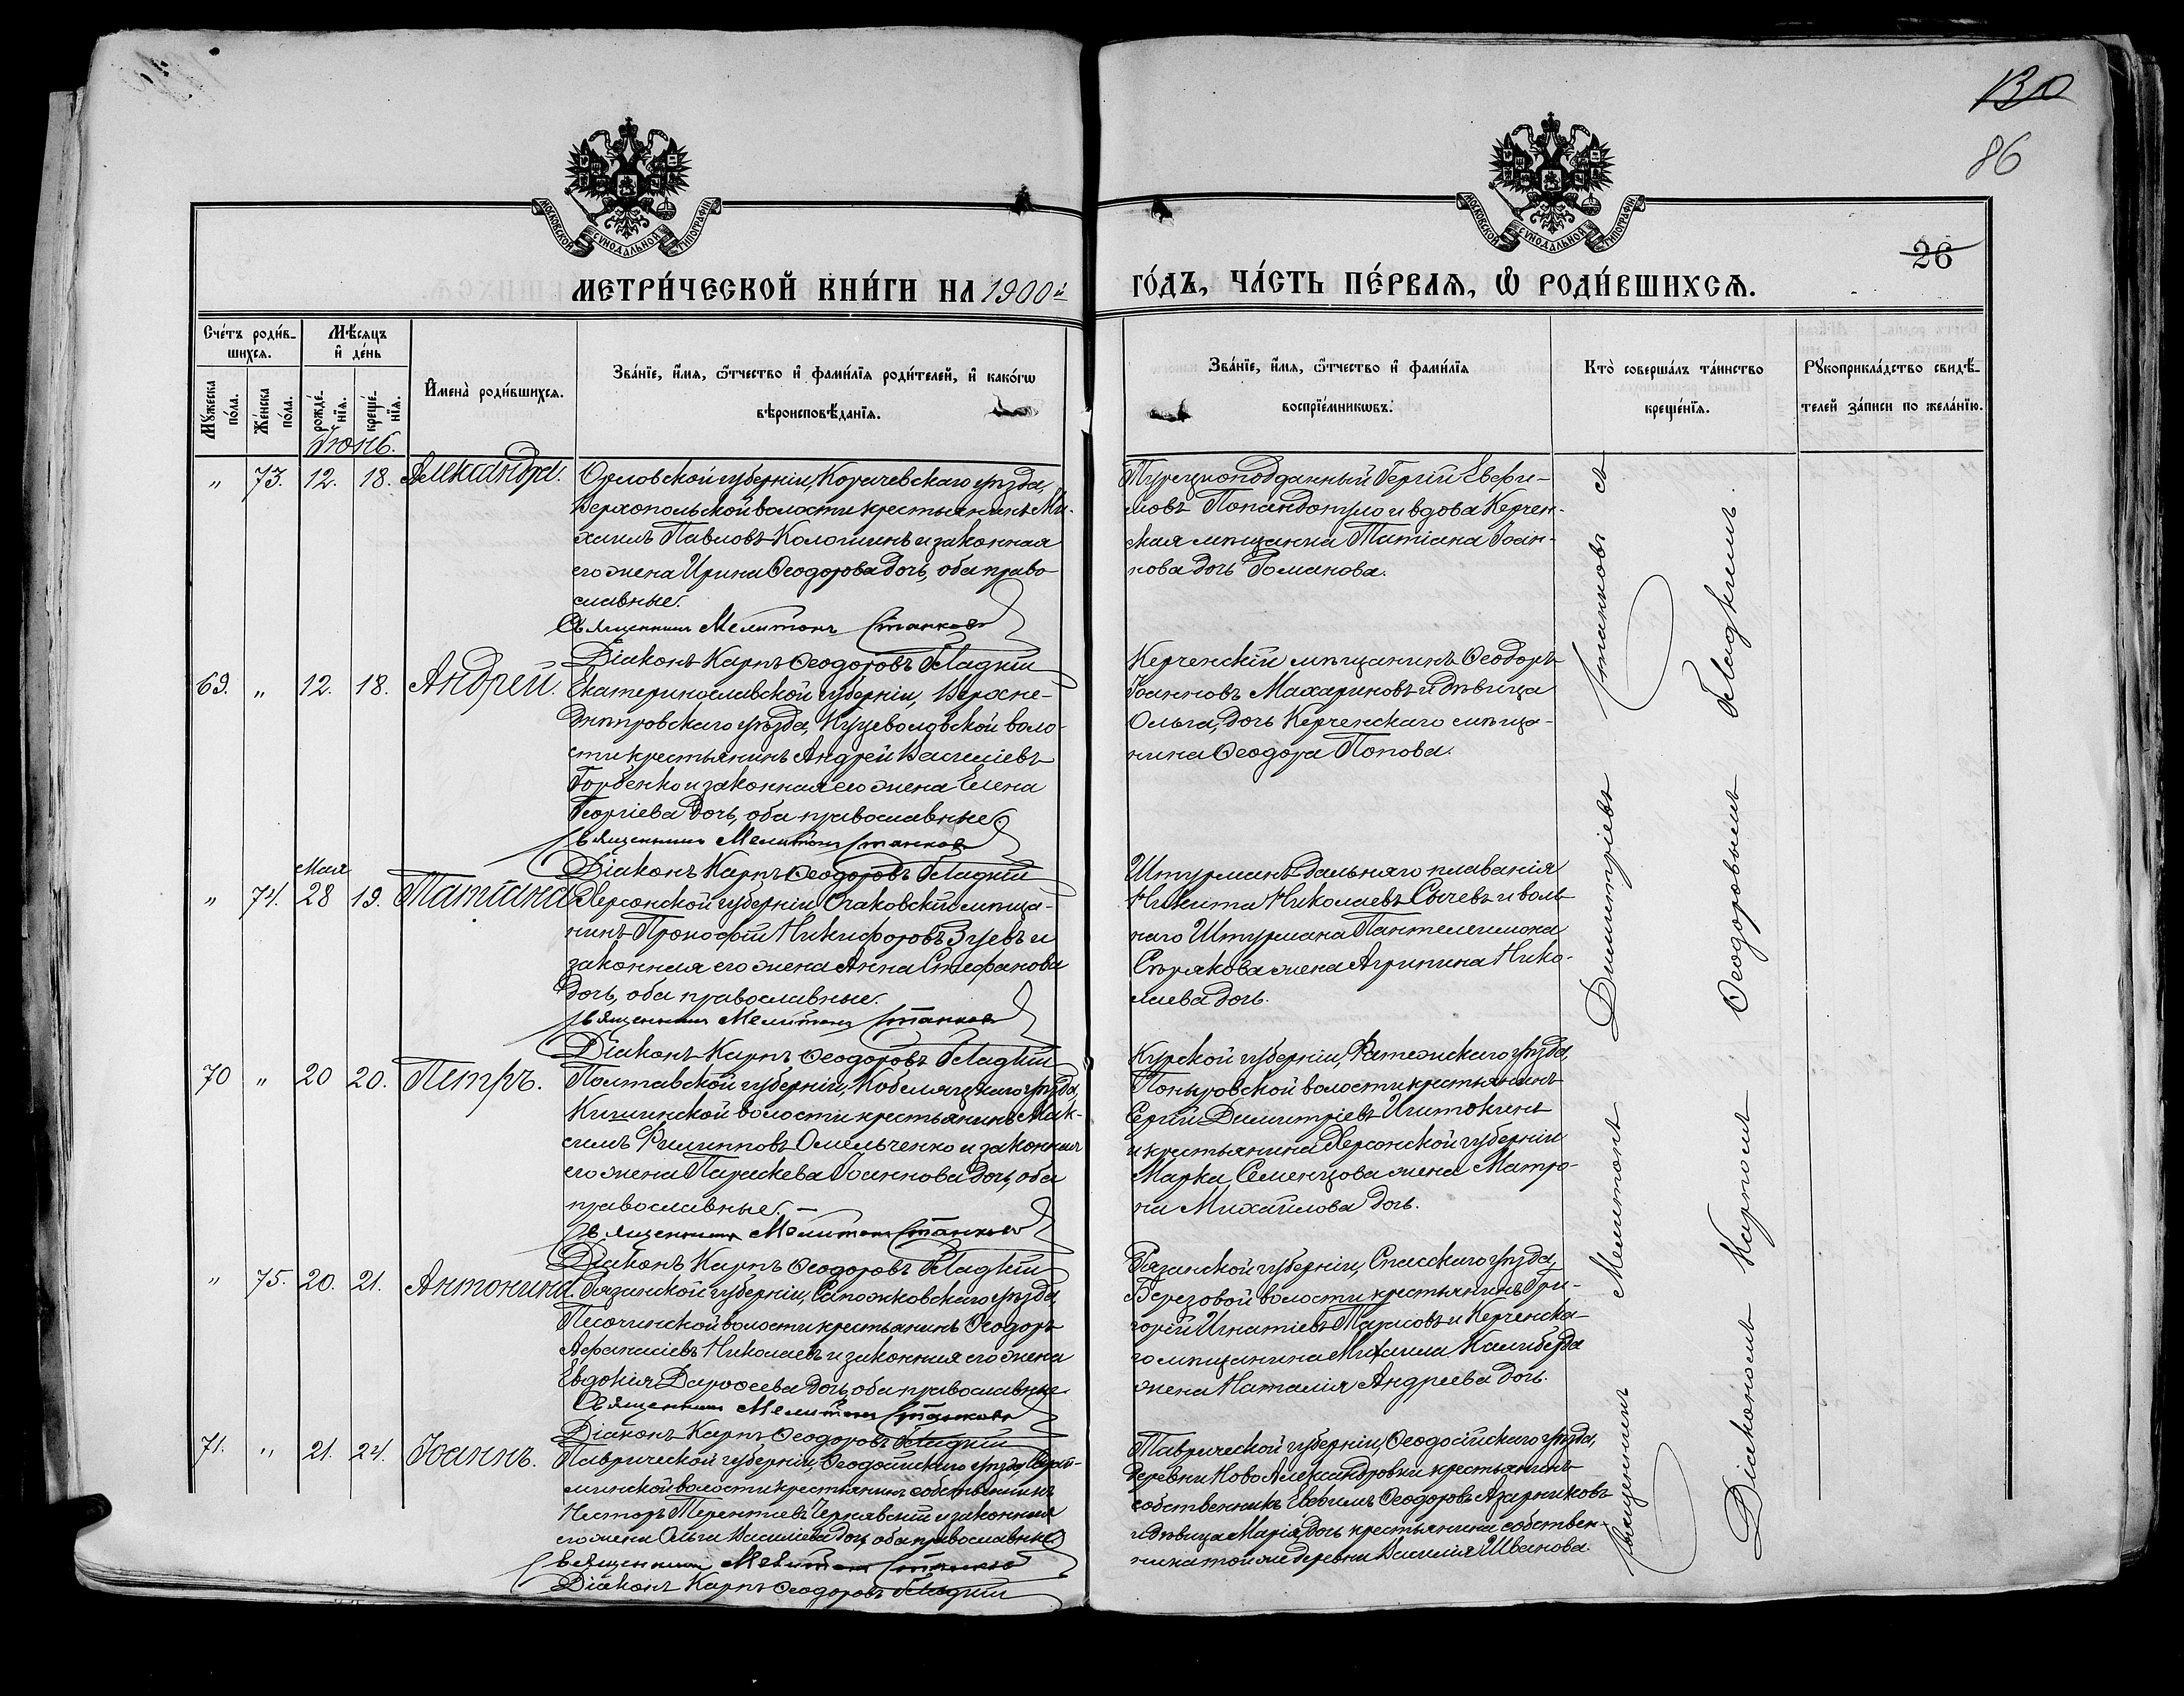 130
86
26
МОСКОВСКОЙ СѴНОДАЛЬНОЙ ТИПОГРАФІИ
МОСКОВСКОЙ СѴНОДАЛЬНОЙ ТИПОГРАФІИ
МЕТРИ́ЧЕСКОЙ КНИ́ГИ НА 1900й
ГО́ДЪ, ЧА́СТЬ ПЕ́РВАѦ, Ѡ҆ РОДИ́ВШИХСѦ.
Сче́тъ роди́в-
шихсѧ.
Мꙋжеска по́ла.
Же́нска по́ла.
Мѣ́сѧцъ
и҆ де́нь
рожде́нїѧ.
креще́нїѧ.
И҆мена̀ роди́вшихсѧ.
Зва́нїе, и҆́мѧ, ѻ҆́тчество и҆ фами́лїѧ роди́телей, и҆ како́гѡ
вѣроисповѣ́данїѧ.
Зва́нїе, и҆́мѧ, ѻ҆́тчество и҆ фами́лїѧ
воспрїе́мникѡвъ.
Кто̀ соверша́лъ та́инство
креще́нїѧ.
Рꙋкоприкла́дство свидѣ́-
телей за́писи по жела́нїю.
Іюнь.
" 73. 12. 18. Александра.
Орловской губерніи, Корачевскаго уѣзда,
Верхопольской волости крестьянинъ Ми-
хаилъ Павловъ Колошинъ и законная
его жена Ирина Ѳеодорова дочь, оба право-
славные.
Священникъ Мелитонъ Станковъ
Діаконъ Карпъ Ѳеодоровъ Гладкій
Турецкоподданный Гергій Евфи-
мовъ Попандопуло и вдова Керчен-
ская мѣщанка Татіана Іоан-
нова дочь Романова.
69. " 12. 18. Андрей.
Екатеринославской губерніи, Верхне-
днѣпровскаго уѣзда, Куцеволовской воло-
сти крестьянинъ Андрей Василіевъ
Горбенко и законная его жена Елена
Георгіева дочь, оба православные.
Священникъ Мелитонъ Станковъ
Діаконъ Карпъ Ѳеодоровъ Гладкій
Керченскій мѣщанинъ Ѳеодоръ
Іоанновъ Махариновъ и дѣвица
Ольга, дочь Керченскаго мѣща-
нина Ѳеодора Попова.
Мая
" 74. 28 19. Татіана
Херсонской губерніи Очаковскій мѣща-
нинъ Прокофій Никифоровъ Зуевъ и
законная его жена Анна Стефанова
дочь, оба православные.
Священникъ Мелитонъ Станковъ
Діаконъ Карпъ Ѳеодоровъ Гладкій
Штурманъ дальняго плаванія
Никита Николаевъ Сычевъ и воль-
наго Штурмана Пантелеимона
Сѣрякова жена Агрипина Нико-
лаева дочь.
70 " 20 20. Петръ.
Полтавской губерніи, Кобелякскаго уѣзда,
Кишинской волости крестьянинъ Мак-
симъ Филипповъ Омельченко и законная
его жена Параскева Іоаннова дочь, оба
православные.
Священникъ Мелитонъ Станковъ
Діаконъ Карпъ Ѳеодоровъ Гладкій
Курской губерніи, Фатежскаго уѣзда,
Поныровской волости крестьянинъ
Сергій Димитріевъ Игитокинъ
и крестьянина Херсонской губерніи
Марка Семенцова жена Матро-
на Михайлова дочь.
" 75. 20. 21. Антонина.
Рязанской губерніи, Сапожковскаго уѣзда,
Песочинской волости крестьянинъ Ѳеодоръ
Афанасіевъ Николаевъ и законная его жена
Евдокія Дароѳеева дочь, оба православные
Священникъ Мелитонъ Станковъ
Діаконъ Карпъ Ѳеодоровъ Гладкій
Рязанской губерніи, Спасскаго уѣзда,
Березовой волости крестьянинъ Гри-
горій Игнатіевъ Тарасовъ и Керченска-
го мѣщанина Михаила Калиберда
жена Наталія Андреева дочь.
71. " 21. 24. Іоаннъ.
Таврической губерніи, Ѳеодосійскаго уѣзда,
волости крестьянинъ собственникъ
Несторъ Терентіевъ Чернявскій и законная
его жена Ольга Василіева дочь, оба православные
Священникъ Мелитонъ Станковъ
Діаконъ Карпъ Ѳеодоровъ Гладкій
Таврической губерніи, Ѳеодосійскаго уѣзда,
деревни Ново Александровки крестьянинъ
собственникъ Евѳимъ Ѳеодоровъ Азарниковъ
и дѣвица Марія, дочь крестьянина собствен-
ника той же деревни Василія Иванова.
Священникъ Мелитонъ Димитріевъ Станковъ съ
Діакономъ Карпомъ Ѳеодоровымъ Гладкимъ.